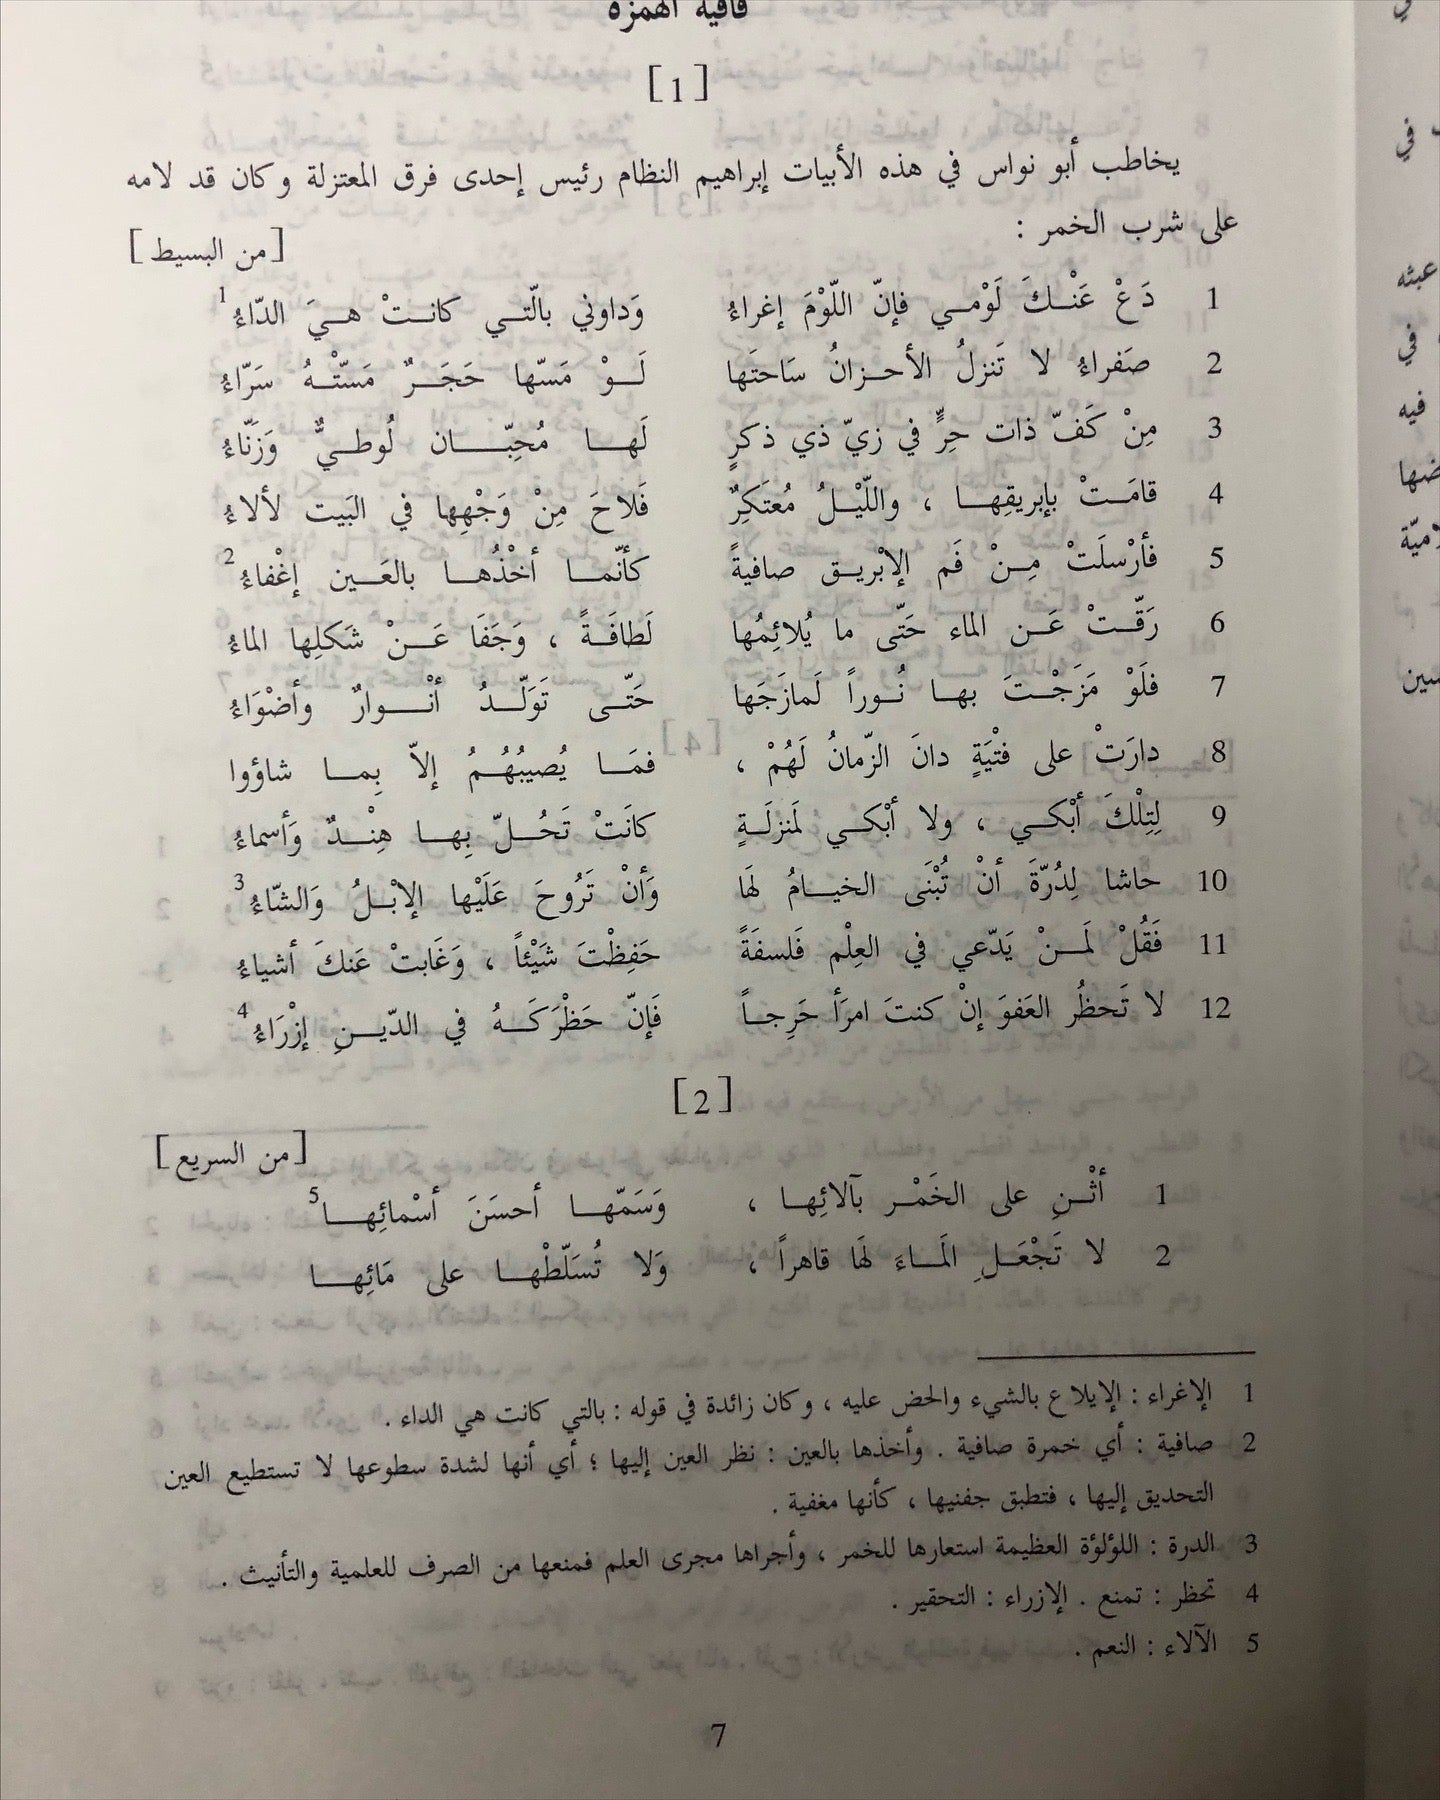 قافية الهمزة
[1]
يخاطب أبو نواس في هذه الأبيات إبراهيم النظام رئيس إحدى فرق المعتزلة وكان قد لامه
على شرب الخمر :
[من البسيط]
1 دَعْ عَنْكَ لَوْمي فإنّ اللّوْمَ إغراءُ وَداوني بالّتي كانتْ هيَ الدّاءُ1
2 صَفراءُ لا تَنزلُ الأحزانُ سَاحتَها لَوْ مَسّها حَجَرٌ مَسّتْهُ سَرّاءُ
3 مِنْ كَفّ ذات حِرٍّ في زيّ ذي ذكرٍ لَها مُحِبّان لُوطيٌّ وَزَنّاءُ
4 قامَتْ بإبريقِها ، واللّيْلُ مُعتَكِرٌ فَلاحَ مِنْ وَجْهِها في البَيت لألاءُ
5 فأرْسلَتْ مِنْ فَم الإبْريق صافيةً كأنّما أخْذُها بالعَين إغْفاءُ2
6 رَقّتْ عَن الماء حَتّى ما يُلائِمُها لَطافَةً ، وَجَفَا عَنْ شَكلِها الماءُ
7 فلَوْ مَزَجْتَ بها نُوراً لَمازَجَها حَتّى تَوَلّدُ أنْوارٌ وأضْوَاءُ
8 دارَتْ على فتْيَةٍ دانَ الزّمانُ لَهُمْ ، فمَا يُصيبُهُمُ إلاّ بِما شاؤوا
9 لِتِلْكَ أبْكي ، ولا أبْكي لمَنزلَةٍ كانَتْ تَحُلّ بِها هِنْدٌ وَأسماءُ
10 حاشا لِدُرّةَ أنْ تُبْنَى الخيامُ لهَا وَأنْ تَرُوحَ عَلَيْها الإبْلُ وَالشّاءُ3
11 فَقُلْ لمَنْ يَدّعي في العِلْم فَلسفَةً حَفِظْتَ شَيْئاً ، وَغَابتْ عَنكَ أشياءُ
12 لا تَحظُر العَفوَ إنْ كنتَ امرَأ حَرِجاً فَإنّ حَظْرَكَهُ في الدّينِ إزْرَاءُ4
[2]
[من السريع]
1 أثْنِ على الخَمْر بآلائِها ، وَسَمّها أحسَنَ أسْمائِها5
2 لا تَجْعَلِ المَاءَ لهَا قاهراً ، وَلا تُسَلّطْها على مَائِها
1 الإغراء : الإيلاع بالشيء والحض عليه ، وكان زائدة في قوله : بالتي كانت هي الداء .
2 صافية : أي خمرة صافية . وأخذها بالعين : نظر العين إليها ؛ أي أنها لشدة سطوعها لا تستطيع العين
التحديق إليها ، فتطبق جفنيها ، كأنها مغفية .
3 الدرة : اللؤلؤة العظيمة استعارها للخمر ، وأجراها مجرى العلم فمنعها من الصرف للعلمية والتأنيث .
4 تحظر : تمنع . الإزراء : التحقير .
5 الآلاء : النعم .
7